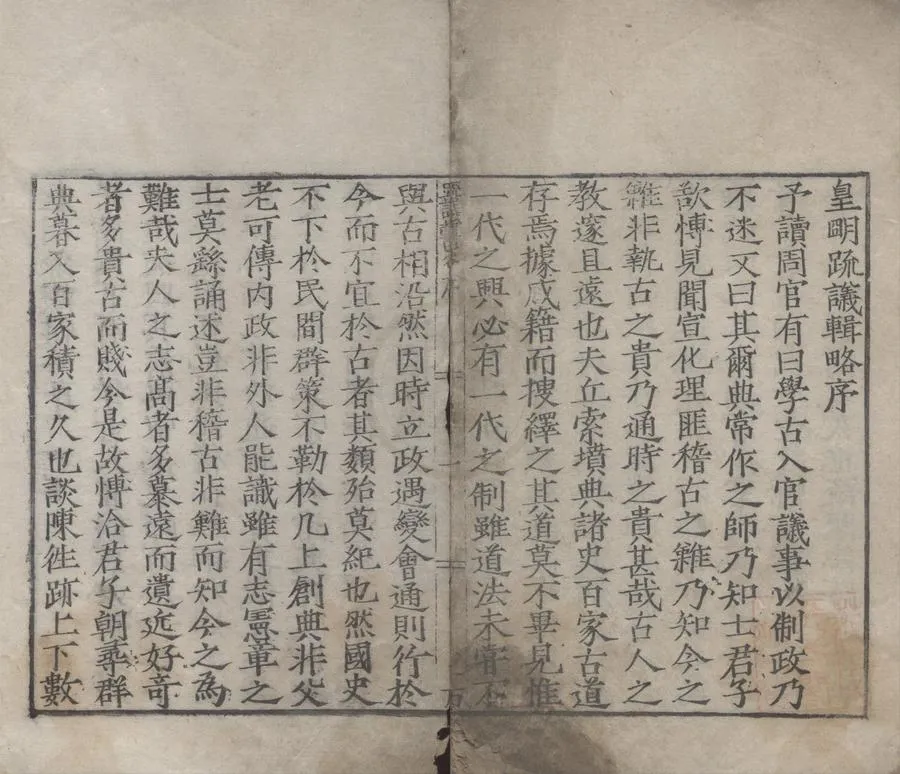 皇明疏議輯略序
予讀周官有曰學古入官議事以制政乃
不迷又曰其爾典常作之師乃知士君子
欲慱見聞宣化理匪稽古之難乃知今之
難非執古之貴乃通時之貴甚哉古人之
教邃且遠也夫丘索墳典諸史百家古道
存焉據成籍而搜繹之其道莫不畢見惟
一代之興必有一代之制雖道法未甞不
與古相沿然因時立政遇變會通則行於
今而不宜於古者其類殆莫紀也然國史
不下於民間群策不勒於几上創典非父
老可傳内政非外人能識雖有志憲章之
士莫繇誦述豈非稽古非難而知今之為
難哉夫人之志高者多慕遠而遺近好竒
者多貴古而賤今是故慱洽君子朝尋群
典暮入百家積之久也談陳徃跡上下數